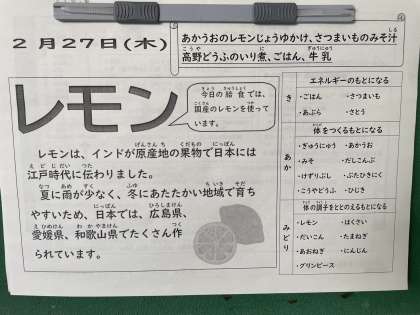 2月27日(木)
あかうおのレモンじょうゆかけ、さつまいものみそ汁
高野どうふのいり煮、ごはん、牛乳
レモン
今日の給食では、
国産のレモンを使って
います。
レモンは、インドが原産地の果物で日本には
江戸時代に伝わりました。
夏に雨が少なく、冬にあたたかい地域で育ち
やすいため、日本では、広島県、
愛媛県、和歌山県でたくさん作
られています。
き
エネルギーのもとになる
・ごはん ・さつまいも
・あぶら ・さとう
あか
体をつくるもとになる
・ぎゅうにゅう ・あかうお
・みそ ・だしこんぶ
・けずりぶし ・ぶたひきにく
・こうやどうふ ・ひじき
みどり
体の調子をととのえるもとになる
・レモン ・はくさい
・だいこん ・たまねぎ
・あおねぎ ・にんじん
・グリンピース